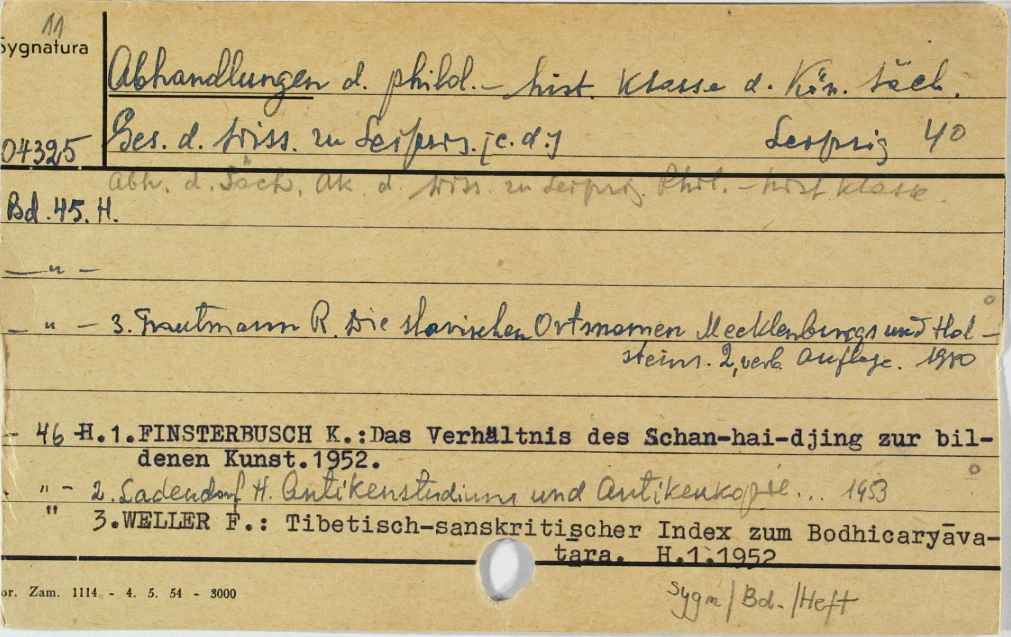 11
Sygnatura
Abhandlungen d. philol.- hist. Klasse d. Kön. Säch.
04325 Ges. d. Wiss. zu Leipzig. [c.d.] Leipzig 4°
Abh. d. Säch. Ak. d. Wiss. zu Leipzig Phil. - hist Klasse.
Bd. 45. H.
— " —
— " — 3. Trautmann R. Die slavischen Ortsnamen Mecklenburgs und Hol-
steins. 2, verb. Auflage. 1950
- 46 -H.1.FINSTERBUSCH K.:Das Verhältnis des Schan-hai-djing zur bil-
denen Kunst.1952.
" - 2. Ladendorf H. Antikenstudium und Antikenkopie... 1953
" 3.WELLER F.: Tibetisch-sanskritischer Index zum Bodhicaryāva-
tāra. H.1.1952
or. Zam. 1114 - 4. 5. 54 - 3000
Sygn/Bd./Heft